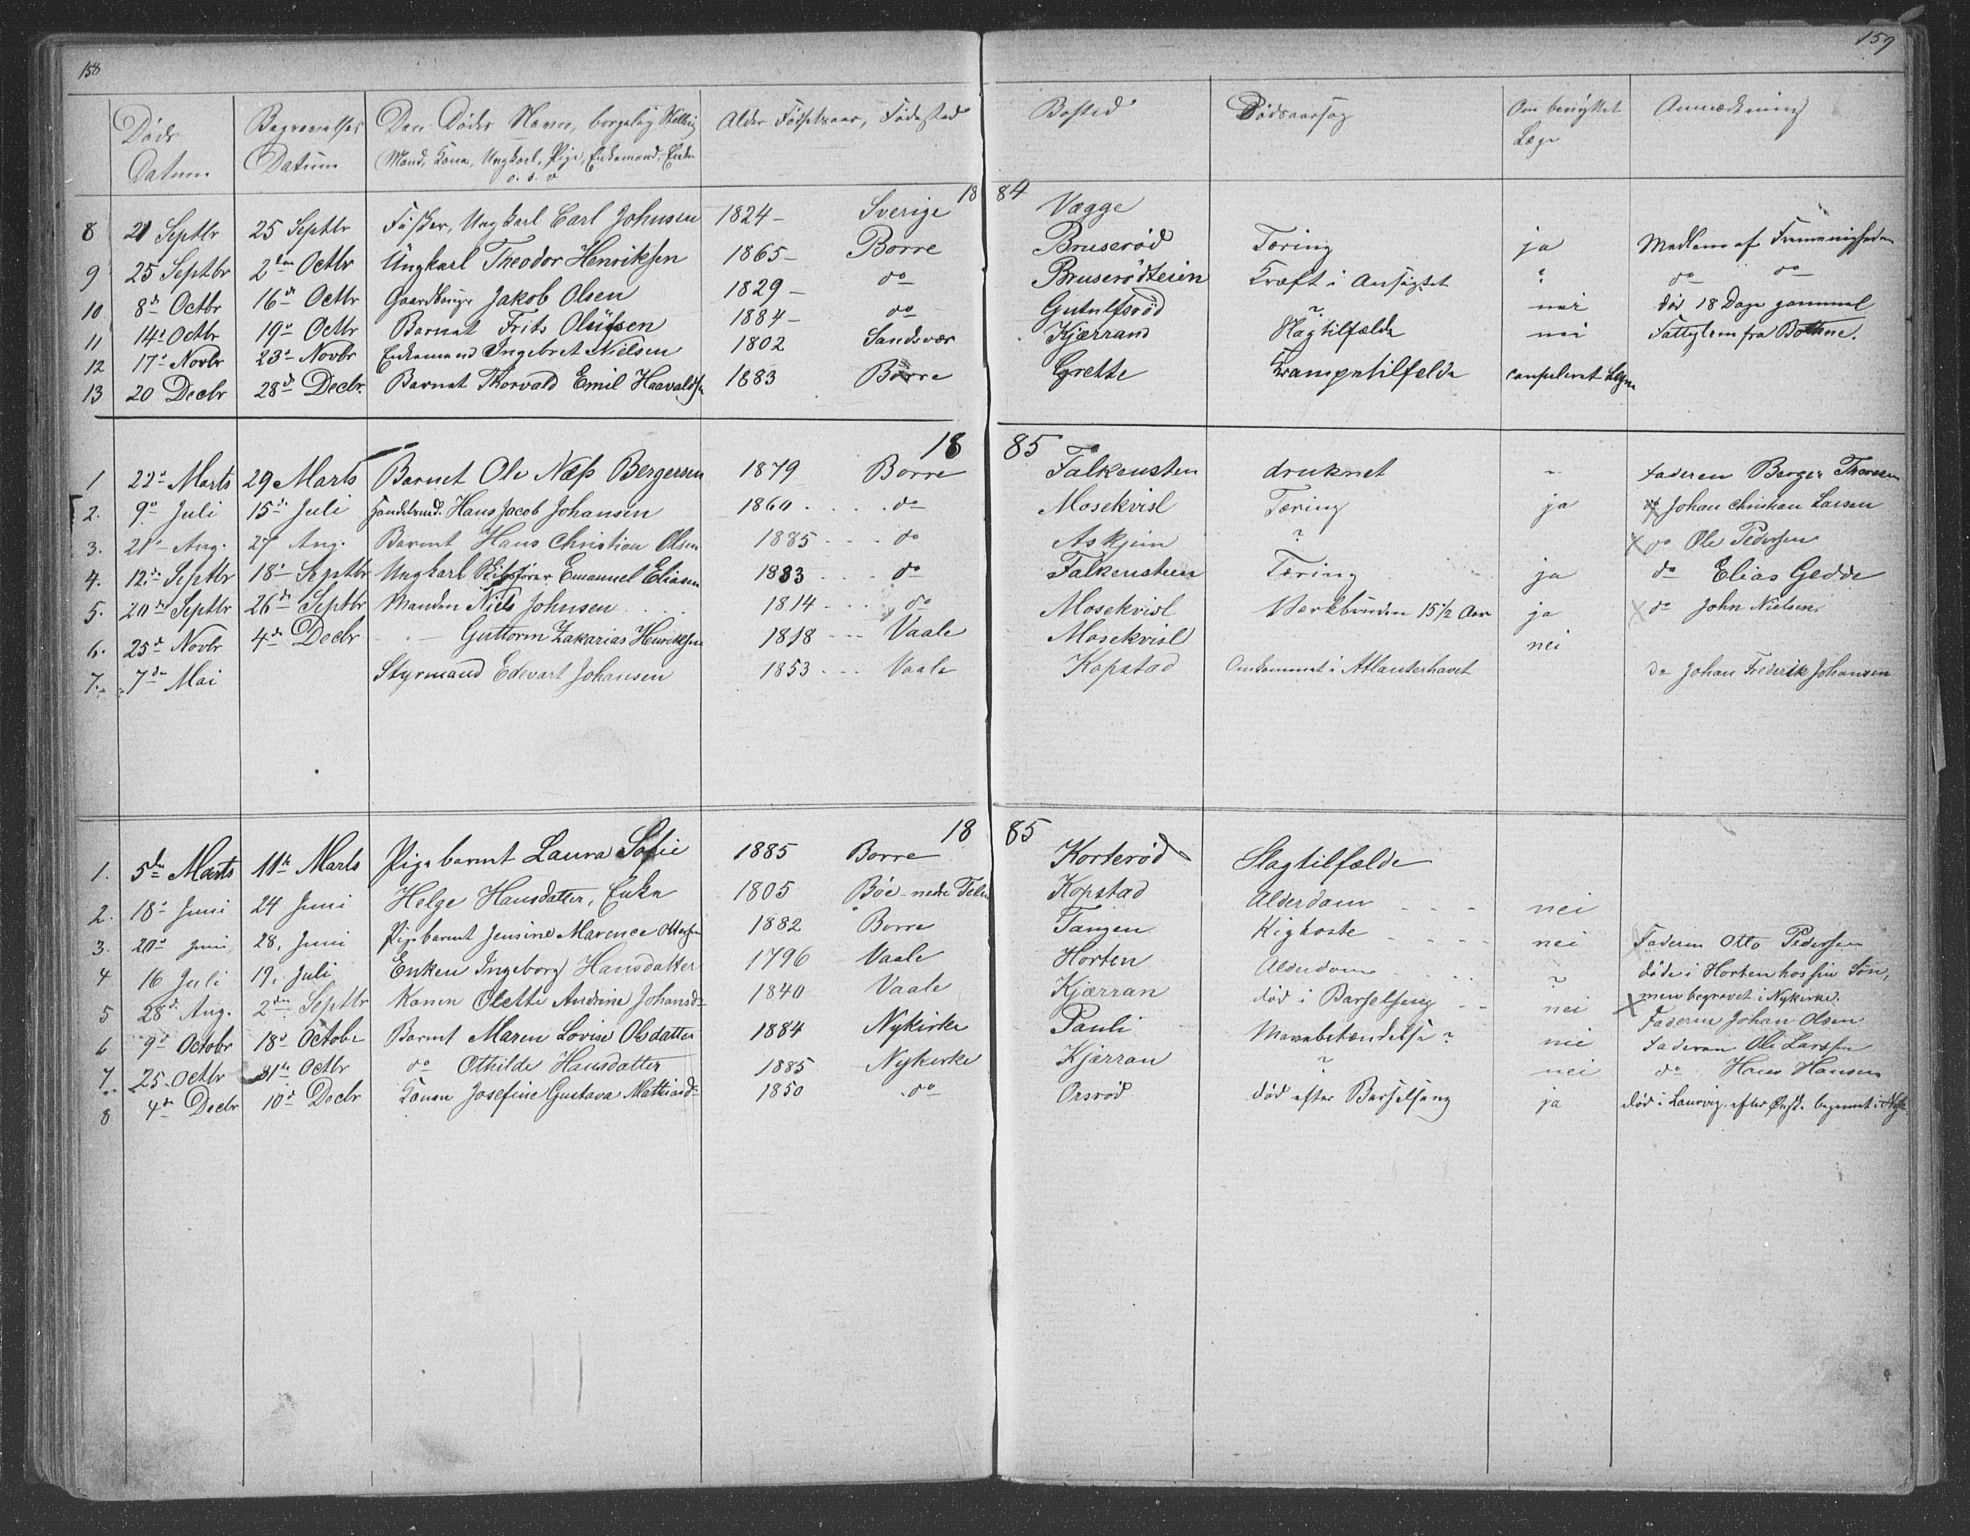 158
159
Døds Datum | Begravelses Datum | Den Dødes Navn, borgerlig Stilling Mand, Kone, Ungkarl, Pige, Enkemand, Enke o.s.v | Alder Fødselsaar, Fødested | Bosted | Dødsaarsag | Om benyttet Læge | Anmærkning
1884
8 | 21 Septbr | 25 Septbr | Fisker, Ungkarl Carl Johnsen | 1824 – | Sverige | Vagge
9 | 25 Septbr | 2den Octbr | Ungkarl Theodor Henriksen | 1865 – | Borre | Bruserød | Tæring | ja | Medlem af
10 | 8de Octbr | 16de Octbr | Gaardbruger Jakob Olsen | 1829 – | do | Bruserødteien | Kræft i Ansigtet | " | do do
11 | 14de Octbr | 19de Octbr | Barnet Frits Olufsen | 1884 – | do | Gutulfsrød | ? | nei | død 18 Dage gammel
12 | 17de Novbr | 23de Novbr | Enkemand Ingebret Nielsen | 1802 | Sandsvær | Kjærrand | Slagtilfælde | nei | Fattiglem fra Bottne.
13 | 20 Decbr | 28de Decbr. | Barnet Thorvald Emil Haavalds | 1883 | Borre | Grette | Krampetilfælde | Læge
1885
1 | 22de Marts | 29 Marts | Barnet Ole Næss Bergersen | 1879 | Borre | Falkensten | druknet | " | Faderen Berger Thoresen
2. | 9de Juli | 15de Juli | Handelsmd. Hans Jacob Johansen | 1860 | do | Mosekvisl | Tæring | ja | do Johan Christian Larsen
3. | 21de Aug. | 27 Aug. | Barnet Hans Christian Olsen | 1885 | do | Askjem | ? | X do Ole Pedersen
4. | 12te Septbr | 18de Septbr | Ungkarl Skibsfører Emanuel Eliasen | 1883 | do | Falkensteen | Tæring | ja | do Elias Gedde
5. | 20de Septbr | 26de Septbr | Manden Niels Johnsen | 1814 | do | Mosekvisl | Værkbruden 15 1/2 Aar | ja | X do John Nielsen.
6. | 25de Novbr | 4de Decbr | – Guttorm Zakarias Henriksen | 1818 | Vaale | Mosekvisl | nei
7. | 7de Mai | Styrmand Edevart Johansen | 1853 | Vaale | Kopstad | Omkommet i Atlanterhavet | do Johan Frederik Johansen
1885
1. | 5de Marts | 11te Marts | Pigebarnet Laura Sofie | 1885 | Borre | Korterød | Slagtilfælde
2. | 18de Juni | 24 Juni | Helge Hansdatter, Enke | 1805 | Bøe nedre Telem | Kopstad | Alderdom | nei
3. | 20de Juni | 28. Juni | Pigebarnet Jensine Marence Ottersen | 1882 | Borre | Tangen | Kighoste | nei | Faderen Otto Pedersen
4 | 16 Juli | 19. Juli | Enken Ingeborg Hansdatter | 1796 | Vaale | Horten | Alderdom | " | døde i Horten hos sin Søn,
men begravet i Nykirke.
5 | 28de Aug. | 2den Septbr | Konen Olette Andrine Johansd | 1840 | Vaale | Kjærran | død i Barselseng | nei | X Faderen Johan Olsen
6 | 9de Octobr | 18de Octobr | Barnet Maren Lovise Olsdatter | 1884 | Nykirke | Pauli | Mavebetændelse ? | nei | Faderen Ole Larsen
7. | 25 Octbr | 31te Octbr | do Othilde Hansdatter | 1885 | Nykirke | Kjærran | ? | nei | do Hans Hansen
8 | 4de Decbr | 10de Decbr | Konen Josefine Gustava Mathiasd | 1850 | do | Orsrød | død efter Barselseng | ja | død i Laurvig, efter begravet i